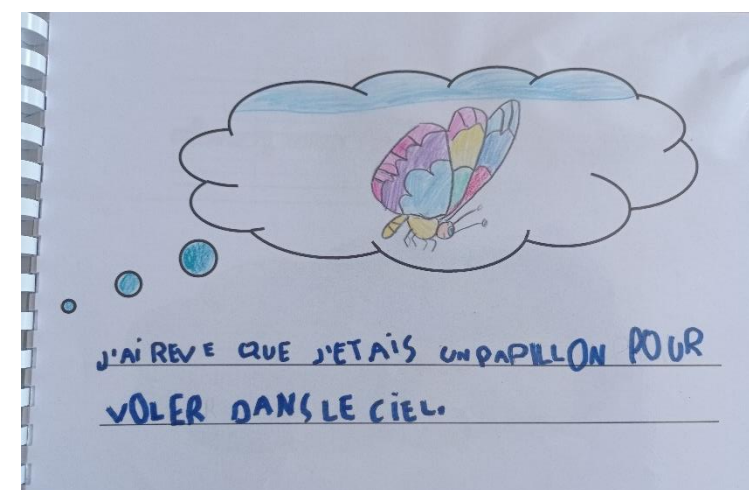 J'Ai REVE QUE J'ETAiS UN PAPILLON POUR
VOLER DANS LE CiEL.